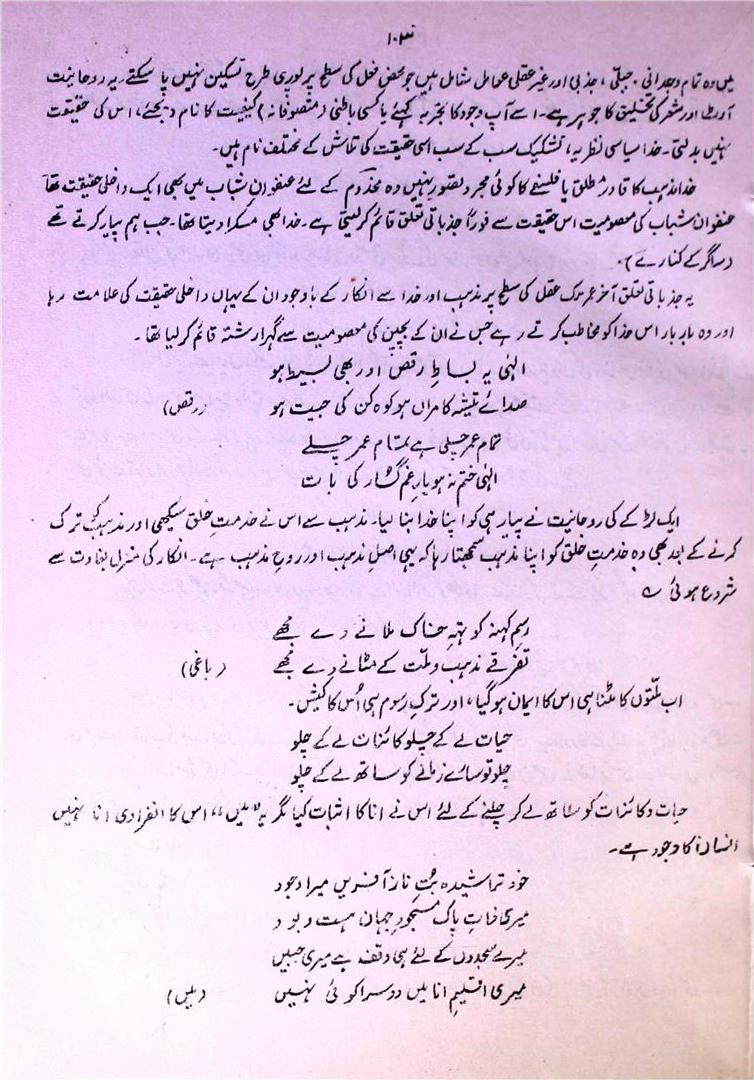 ۱۰۳
میں وہ تمام وجدانی، جبلّی، جذبی اور غیر عقلی عوامل شامل ہیں جو محض عقل کی سطح پر پوری طرح تسکین نہیں پا سکتے۔ یہ روحانیت
آرٹ اور شعر کی تخلیق کا جوہر ہے۔ اسے آپ وجود کا تجربہ کہئے یا کسی باطنی (متصوفانہ) کیفیت کا نام دیجئے، اس کی حقیقت
نہیں بدلتی۔ خدا سیاسی نظریہ، تشکیک سب کے سب اسی حقیقت کی تلاش کے مختلف نام ہیں۔
خدا مذہب کا قادرِ مطلق یا فلسفے کا کوئی مجرد تصور نہیں وہ مخدوم کے لئے عنفوانِ شباب میں بھی ایک داخلی حقیقت تھا
عنفوانِ شباب کی معصومیت اس حقیقت سے فوراً جذباتی تعلق قائم کر لیتی ہے۔ خدا بھی مسکرا دیتا تھا۔ جب ہم پیار کرتے تھے
(ساگر کے کنارے)۔
یہ جذباتی تعلق آخر عمر تک عقل کی سطح پر مذہب اور خدا سے انکار کے باوجود ان کے یہاں داخلی حقیقت کی علامت رہا
اور وہ بار بار اس خدا کو مخاطب کرتے رہے جس نے ان کے بچپن کی معصومیت سے گہرا رشتہ قائم کر لیا تھا۔
الٰہی یہ بساطِ رقص اور بھی بسیط ہو
صدائے تیشہ کامراں ہو کوہ کن کی جیت ہو (رقص)
تمام عمر چلی ہے تمام عمر چلے
الٰہی ختم نہ ہو یارِ غم گسار کی بات
ایک لڑکے کی روحانیت نے پیار ہی کو اپنا خدا بنا لیا۔ مذہب سے اس نے خدمتِ خلق سیکھی اور مذہب کو ترک
کرنے کے بعد بھی وہ خدمتِ خلق کو اپنا مذہب سمجھتا رہا کہ یہی اصلِ مذہب اور روحِ مذہب ہے۔ انکار کی منزل بغاوت سے
شروع ہوئی ؎
رسمِ کہنہ کو تہِ خاک ملانے دے مجھے
تفرقے مذہب و ملّت کے مٹانے دے مجھے (باغی)
اب ملّتوں کا مٹنا ہی اس کا ایمان ہو گیا، اور ترکِ رسوم ہی اُس کا کیش۔
حیات لے کے چلو کائنات لے کے چلو
چلو تو سارے زمانے کو ساتھ لے کے چلو
حیات و کائنات کو ساتھ لے کر چلنے کے لئے اس نے انا کا اثبات کیا مگر یہ "میں" اس کا انفرادی انا نہیں
انسان کا وجود ہے۔
خود تراشیدہ بُتِ ناز آفریں میرا وجود
میری ذاتِ پاک مسجودِ جہانِ ہست و بود
میرے سجدوں کے لئے ہی وقف ہے میری جبیں
میری اقلیمِ انا میں دوسرا کوئی نہیں (میں)